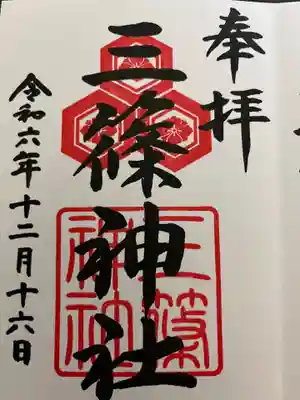 奉拝
三篠神社
三篠神社
令和六年十二月十六日